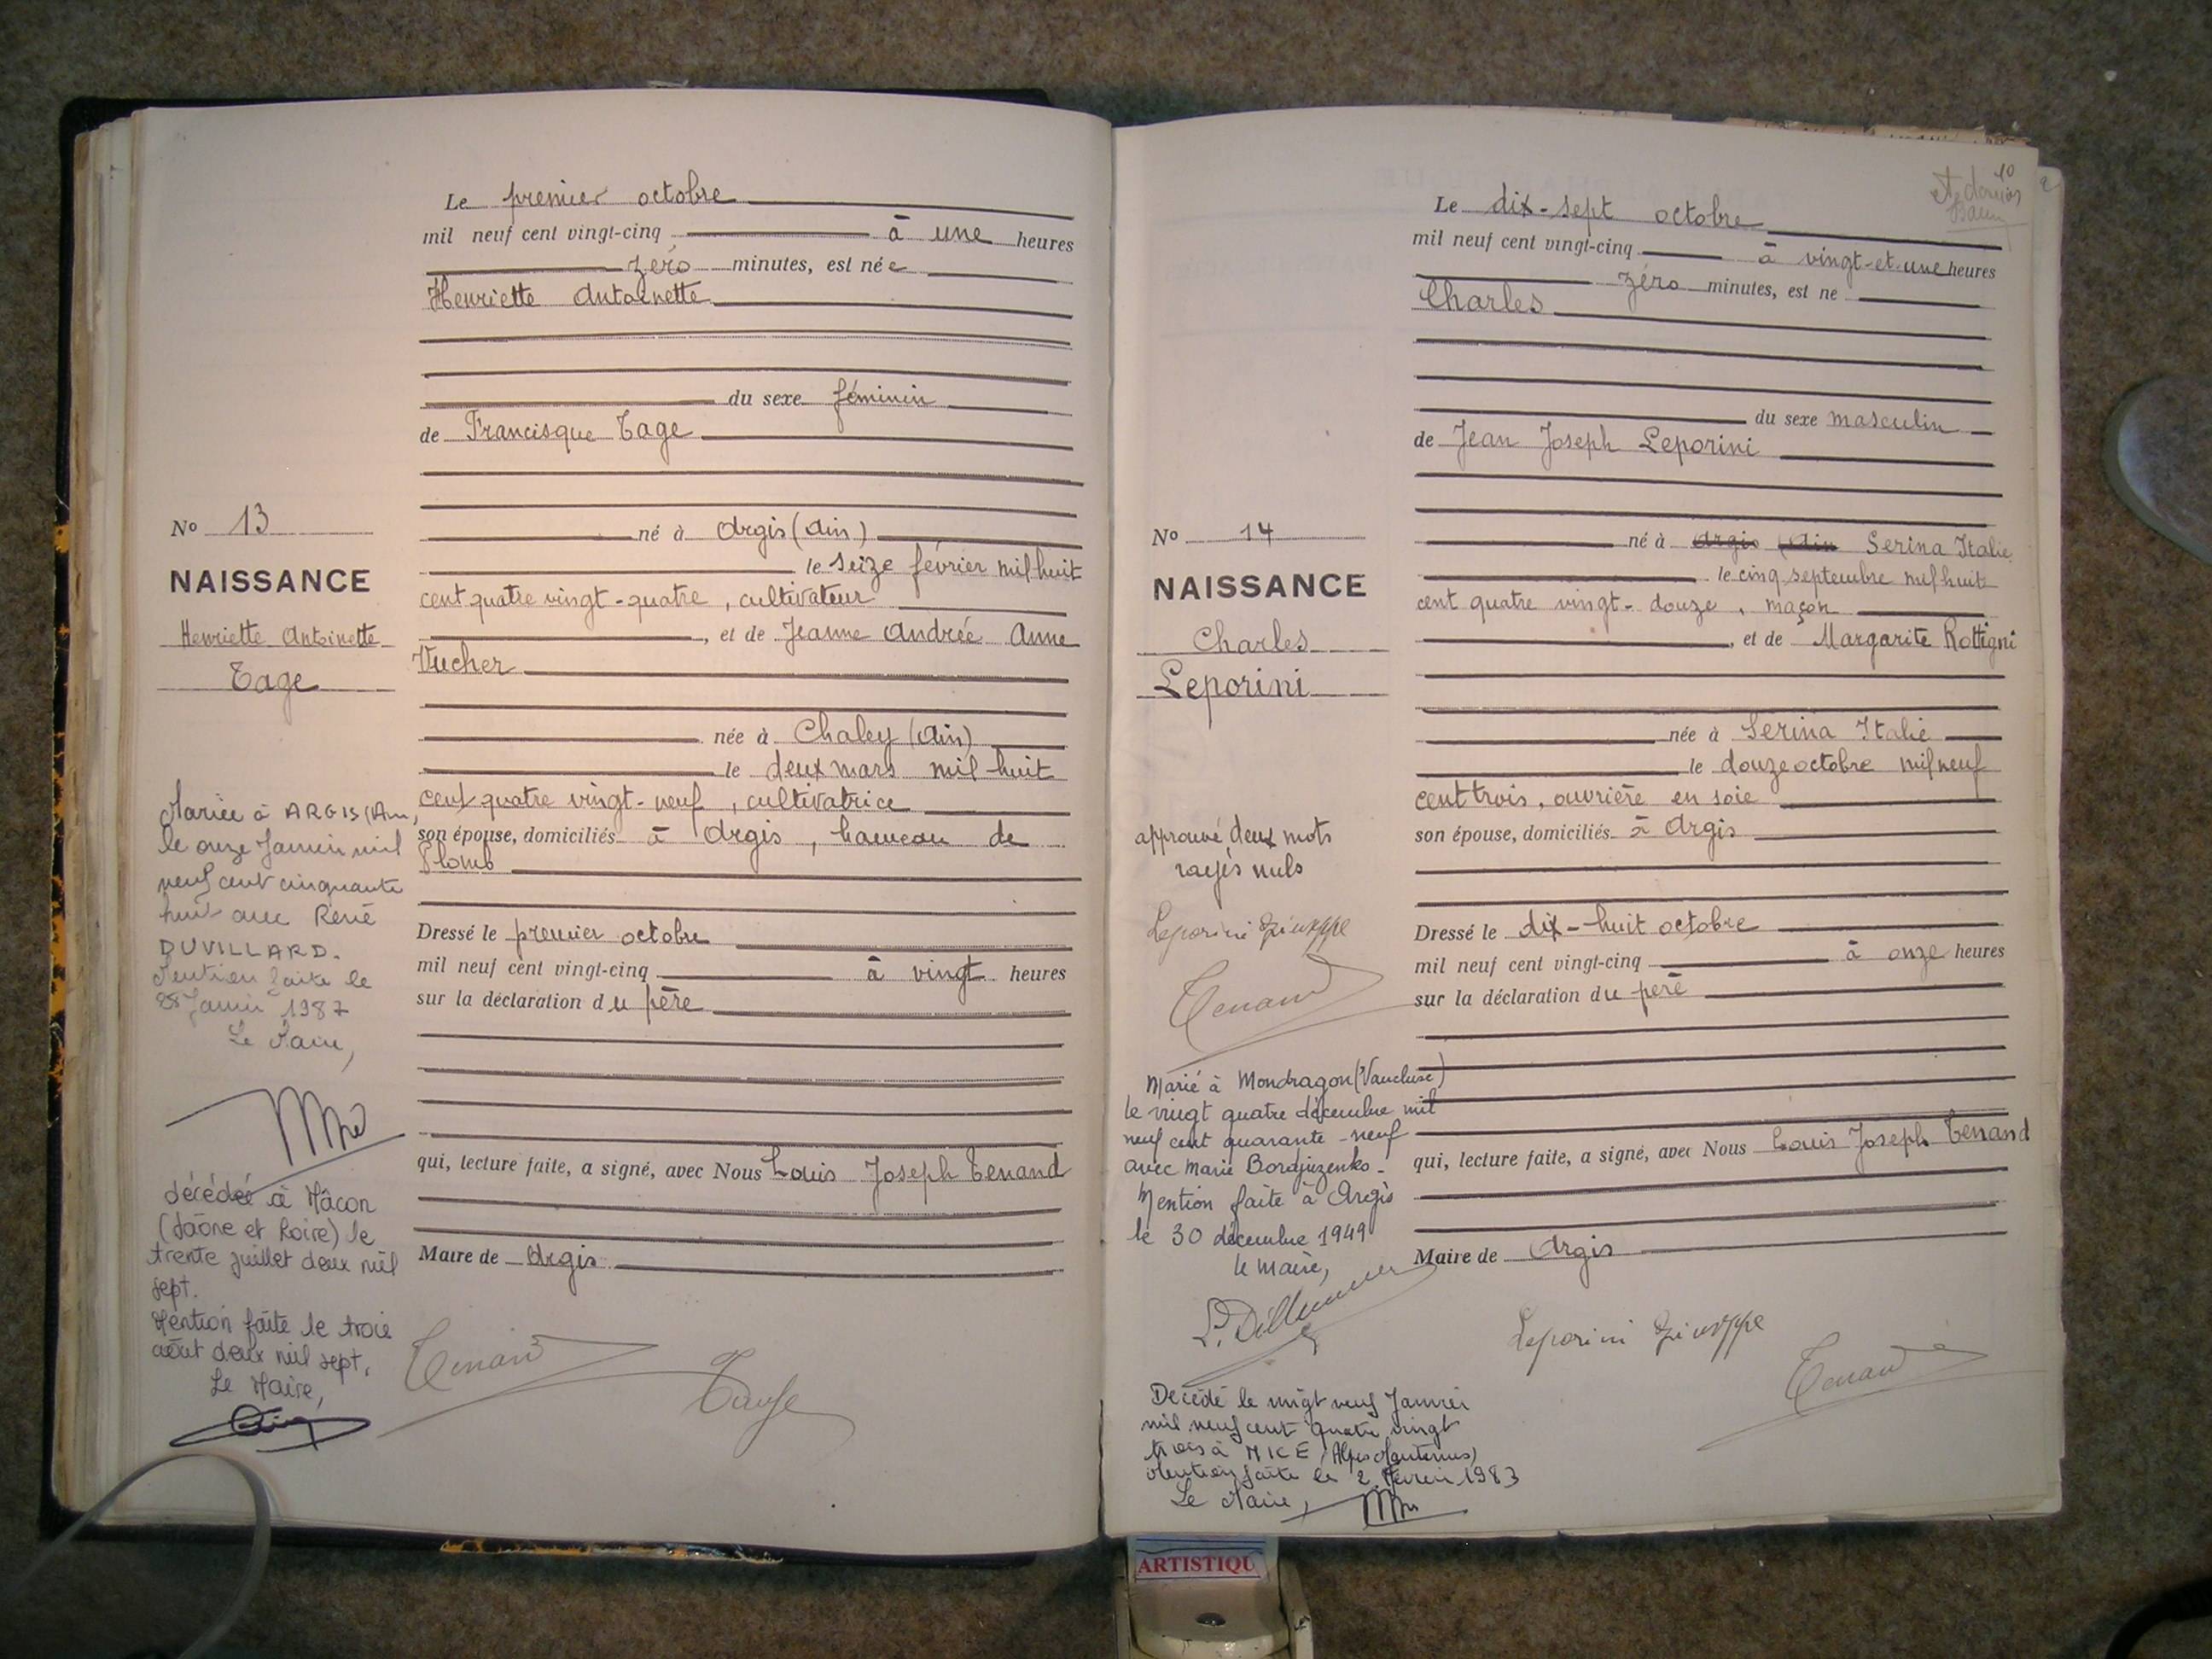 Le premier octobre
mil neuf cent vingt-cinq à une heures
zéro minutes, est née
Henriette Antoinette
du sexe féminin
de Francisque Tage
né à Argis (Ain)
le seize février mil huit
cent quatre vingt-quatre, cultivateur
, et de Jeanne Andrée Anne
Vucher
née à Chaley (Ain)
le deux mars mil huit
cent quatre vingt-neuf, cultivatrice
son épouse, domiciliés à Argis, hameau de
Plomb
Dressé le premier octobre
mil neuf cent vingt-cinq à vingt heures
sur la déclaration du père
qui, lecture faite, a signé, avec Nous Louis Joseph Tenand
Maire de Argis
Tenand
No 13
NAISSANCE
Henriette Antoinette
Tage
Mariée à ARGIS (Ain,
le onze Janvier mil
neuf cent cinquante
huit avec René
DUVILLARD.
Mention faite le
28 Janvier 1987
Le Maire,
décédée à Mâcon
(Saône et Loire) le
trente juillet deux mil
sept.
Mention faite le trois
août deux mil sept,
Le Maire,
10
Le dix-sept octobre
mil neuf cent vingt-cinq à vingt-et-une heures
zéro minutes, est né
Charles
du sexe masculin
de Jean Joseph Leporini
né à Argis (Ain Serina Italie
le cinq septembre mil huit
cent quatre vingt-douze, maçon
, et de Margarite Rottigni
née à Serina Italie
le douze octobre mil neuf
cent trois, ouvrière en soie
son épouse, domiciliés à Argis
Dressé le dix-huit octobre
mil neuf cent vingt-cinq à onze heures
sur la déclaration du père
qui, lecture faite, a signé, avec Nous Louis Joseph Tenand
Maire de Argis
Leporini Giuseppe
Tenand
No 14
NAISSANCE
Charles
Leporini
approuvé deux mots
rayés nuls
Leporini Giuseppe
Tenand
Marié à Mondragon (Vaucluse)
le vingt quatre décembre mil
neuf cent quarante-neuf
avec Marie Bordjuzenko-
Mention faite à Argis
le 30 décembre 1949
le maire,
Décédé le vingt neuf Janvier
mil neuf cent quatre vingt
trois à NICE (Alpes Maritimes)
Mention faite le 2 Février 1983
Le Maire,
ARTISTIQU